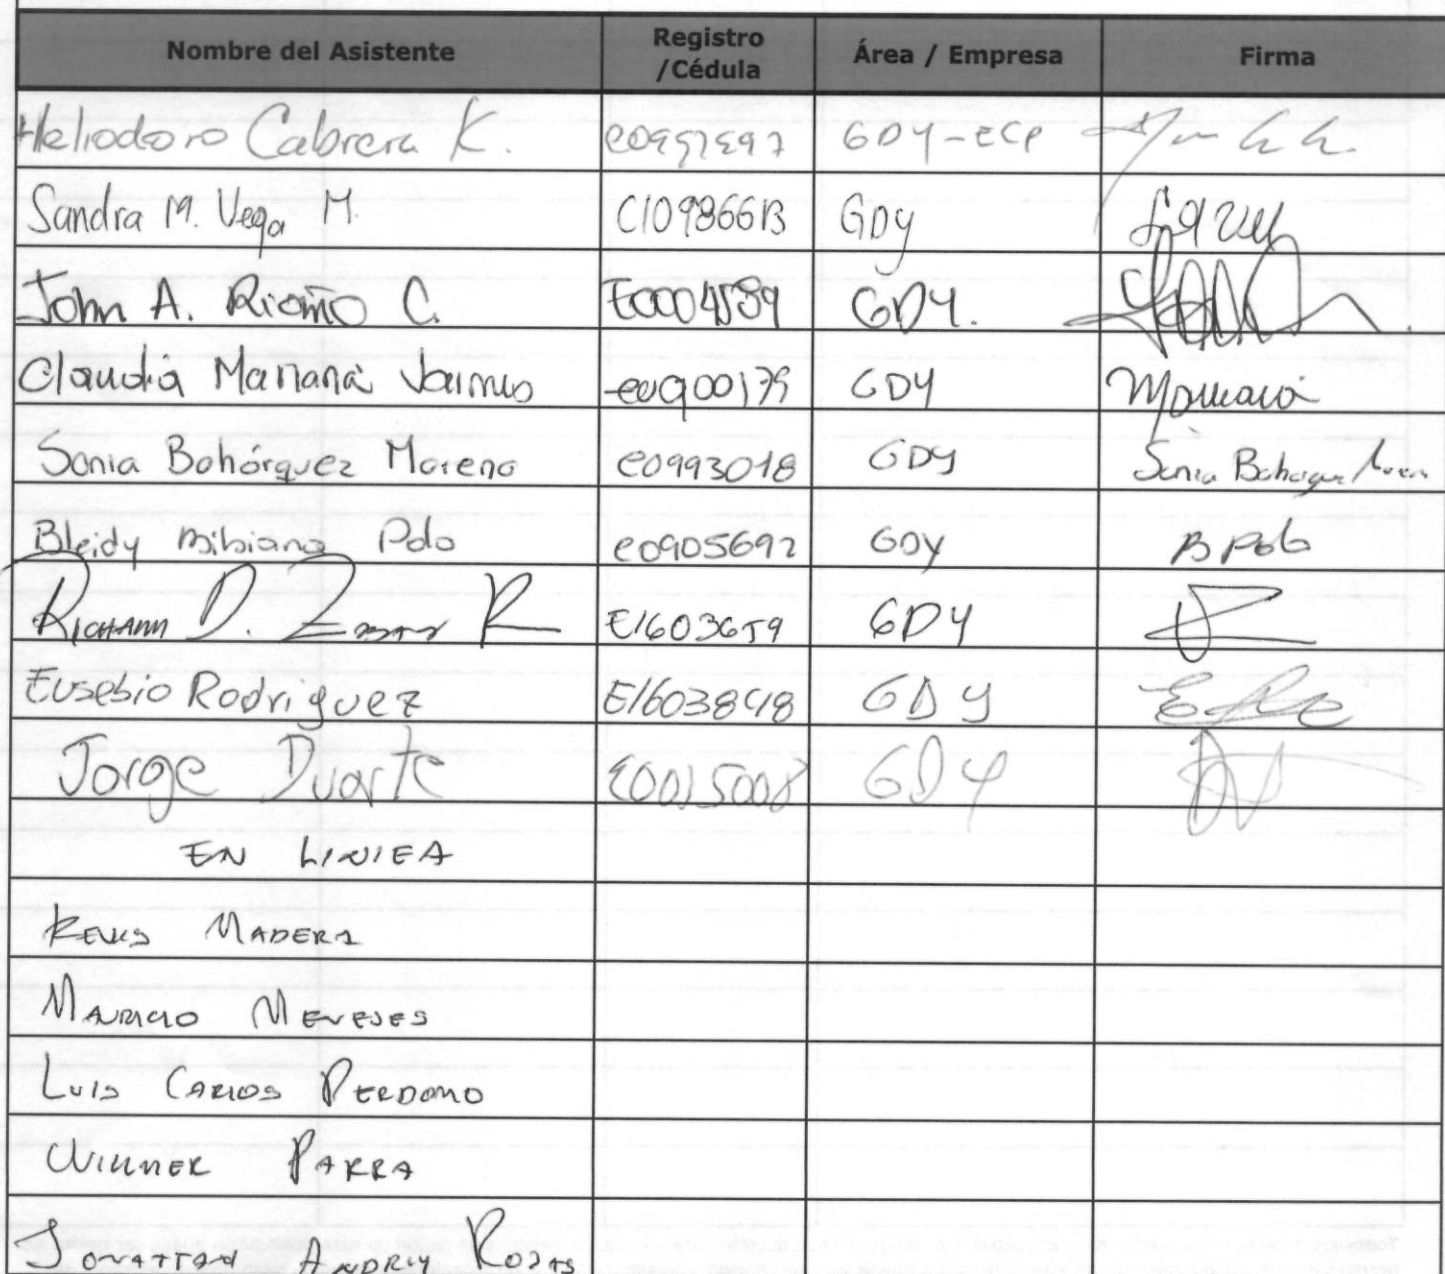 Nombre del Asistente Registro /Cédula Área / Empresa Firma
Heliodoro Cabrera K. e0957597 GDY-ECP
Sandra M. Vega M. C1098661B GDY
John A. Riaño C. E0004589 GDY.
Claudia Mariana Jaimes e0900179 GDY
Sonia Bohórquez Moreno e0993018 GDY Sonia Bohorquez Moreno
Bleidy Bibiana Polo e0905692 GDY B Polo
Richard D. R E1603659 GDY
Eusebio Rodriguez E1603848 GDY
Jorge Duarte E0015008 GDY
EN LINIEA
MADERA
MAURICIO MENESES
LUIS CARLOS PERDOMO
WILMER PARRA
JONATTAN ANDREY ROJAS